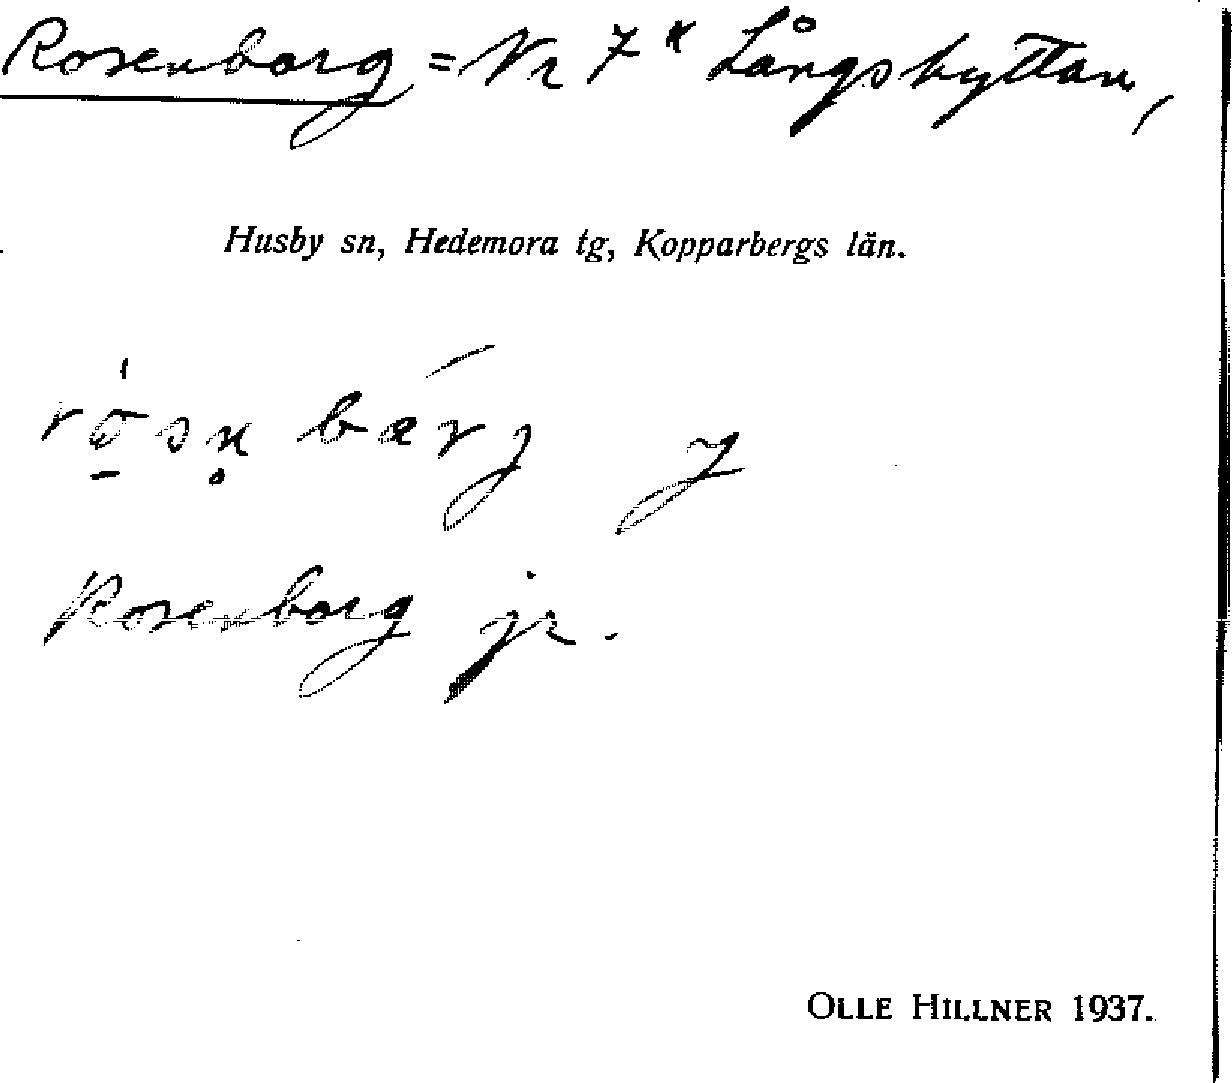 Rosenborg = Nr 7ᴷ Långshyttan,
Husby sn, Hedemora tg, Kopparbergs län.
Rosenborg jr.
OLLE HILLNER 1937.